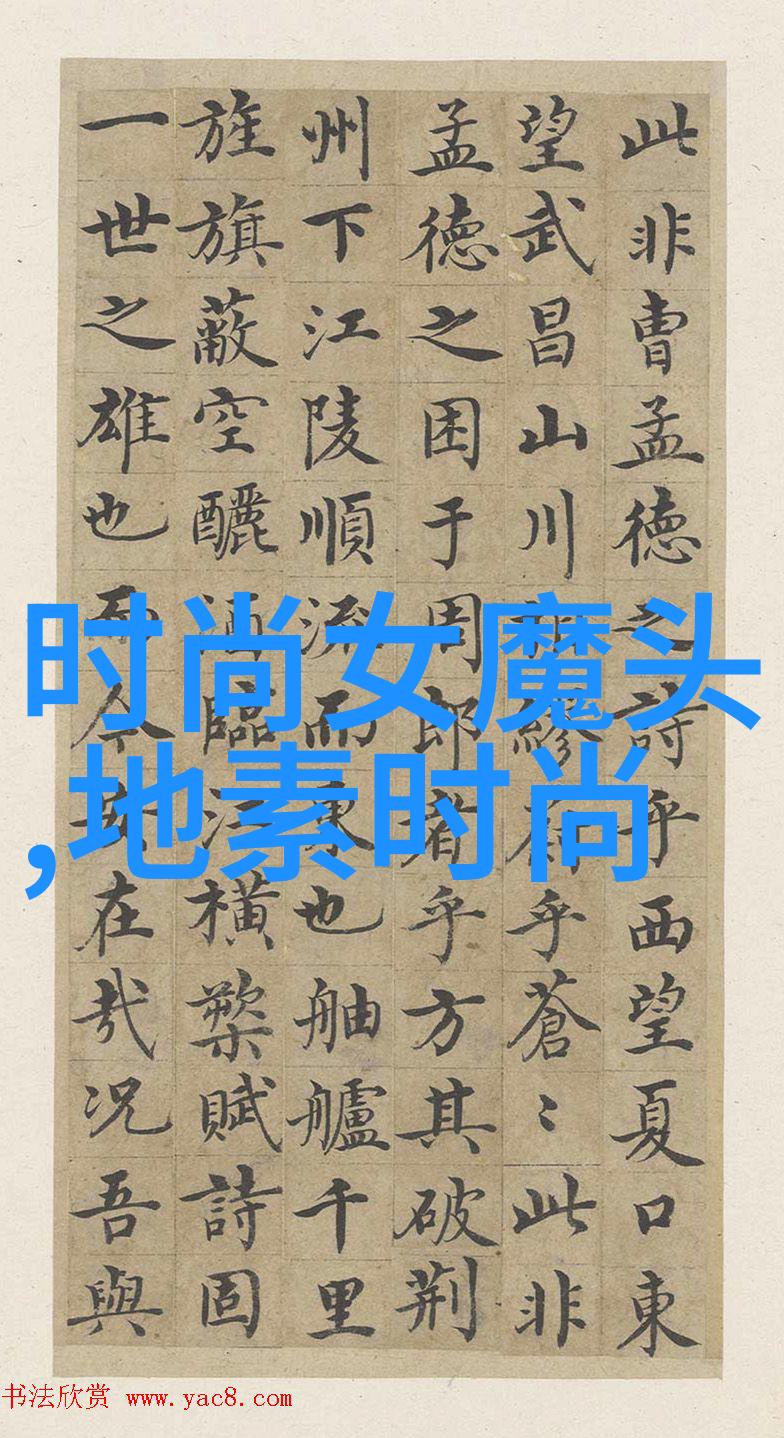 此非曹孟德之詩乎西望夏口東
望武昌山川相繆乎蒼〻此非
孟德之困于周郎者乎方其破荆
州下江陵順流而東也舳艫千里
旌旗蔽空釃酒臨江橫槊賦詩固
一世之雄也而今安在哉况吾與
时尚女魔头
,地素时尚
书法欣赏 www.yac8.com